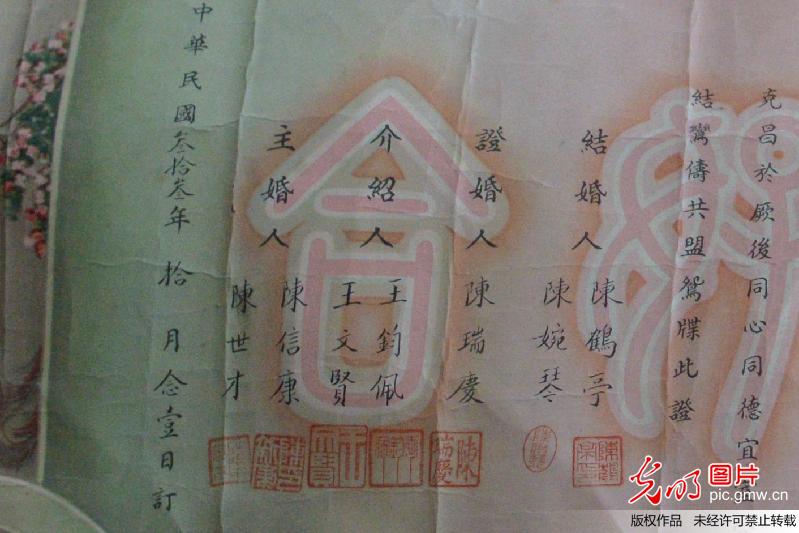 克昌於厥後同心同德宜
結鴛儔共盟鴛牒此證
結婚人 陳鶴亭
陳婉琴
證婚人 陳瑞慶
介紹人 王鈞佩
王文賢
主婚人 陳信康
陳世才
中華民國叁拾叁年拾月念壹日訂
陳瑞慶
光明图片
pic.gmw.cn
版权作品 未经许可禁止转载